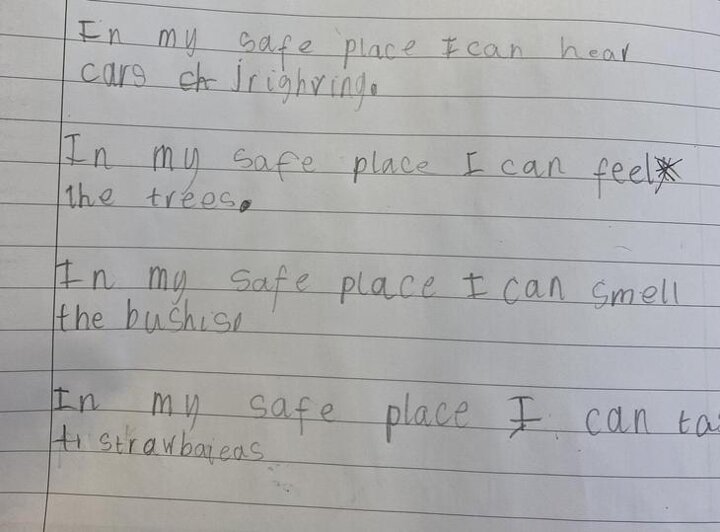 In my safe place I can hear
cars jrighring.
In my safe place I can feel
the trees.
In my safe place I can smell
the bushis
In my safe place I can ta
strawbaieas